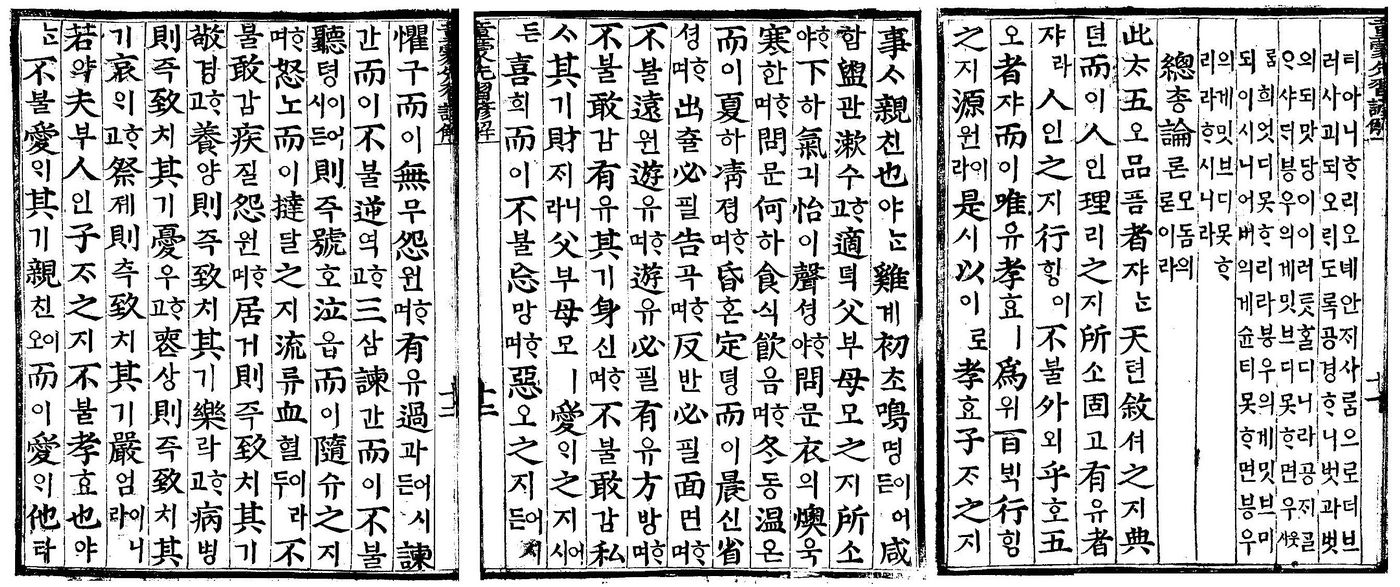 티아니ᄒᆞ리오녜안저사ᄅᆞᆷ으로더브
러사괴되오ᄅᆡ도록공경ᄒᆞ니벗과벗
의되맛당이이러틋홀디니라공저ᄀᆞᆯ
ᄋᆞ샤ᄃᆡ븡우의게밋브디못ᄒᆞ면우읫사
ᄅᆞᆷ희엇디못ᄒᆞ리라븡우의게밋브미
되이시니어버의게슌티못ᄒᆞ면븡우
의게밋브디못ᄒᆞ
리라ᄒᆞ시니라
總총論론모돔의론이라
此ᄎᆞ五오品픔者쟈ᄂᆞᆫ天텬敘셔之지典
뎐而이人인理리之지所소固고有유者
쟈라人인之지行ᄒᆡᆼ이不불外외乎호五
오者쟈而이唯유孝효ㅣ爲위百ᄇᆡᆨ行ᄒᆡᆼ
之지源원이라是시以이로孝효子ᄌᆞ之지
事ᄉᆞ親친也야ᄂᆞᆫ雞계初초鳴명이어든咸
함盥관漱수ᄒᆞ고適뎍父부母모之지所소
ᄒᆞ야下하氣긔怡이聲셩ᄒᆞ야問문衣의燠욱
寒한ᄒᆞ며問문何하食식飮음ᄒᆞ며冬동溫온
而이夏하凊졍ᄒᆞ며昏혼定뎡而이晨신省
셩ᄒᆞ며出츌必필告곡ᄒᆞ며反반必필面면ᄒᆞ며
不불遠원遊유ᄒᆞ며遊유必필有유方방ᄒᆞ며
不불敢감有유其기身신ᄒᆞ며不불敢감私
ᄉᆞ其기財ᄌᆡ니라父부母모ㅣ愛ᄋᆡ之지어시
든喜희而이不불忘망ᄒᆞ며惡오之지어시든
懼구而이無무怨원ᄒᆞ며有유過과ㅣ어시든諫
간而이不불逆역ᄒᆞ고三삼諫간而이不불
聽텽이어시든則즉號호泣읍而이隨슈之지
ᄒᆞ며怒노而이撻달之지流류血혈이라두不
불敢감疾질怨원ᄒᆞ며居거則즉致치其기
敬경ᄒᆞ고養양則즉致치其기樂락ᄒᆞ고病병
則즉致치其기憂우ᄒᆞ고喪상則즉致치其
기哀ᄋᆡᄒᆞ고祭졔則즉致치其기嚴엄이니라
若약夫부人인子ᄌᆞ之지不불孝효也야
ᄂᆞᆫ不불愛ᄋᆡ其기親친이오而이愛ᄋᆡ他타